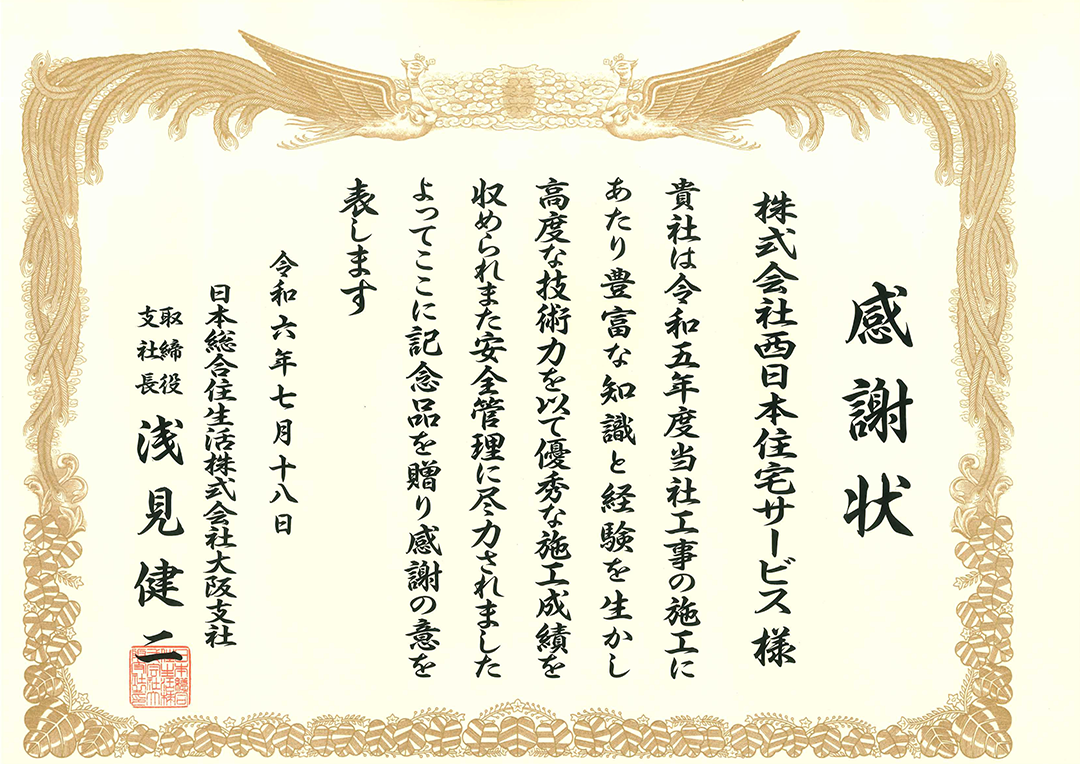 感謝状
株式会社西日本住宅サービス様
貴社は令和五年度当社工事の施工に
あたり豊富な知識と経験を生かし
高度な技術力を以て優秀な施工成績を
収められまた安全管理に尽力されました
よってここに記念品を贈り感謝の意を
表します
令和六年七月十八日
日本総合住生活株式会社大阪支社
取締役
支社長
浅見健二